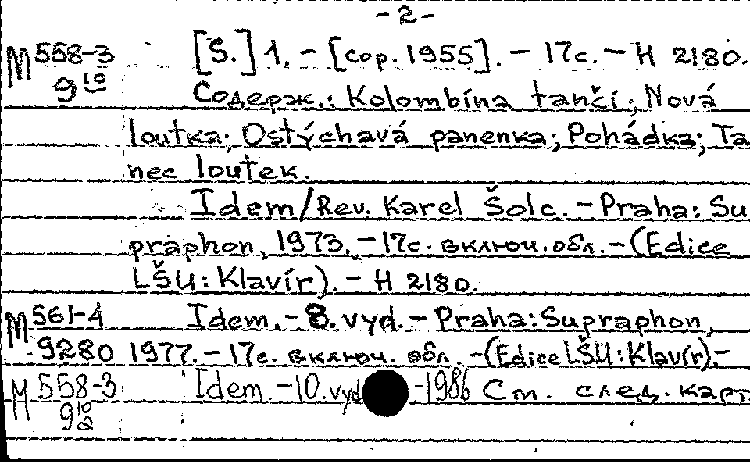 -2-
M 558-3 [S.] 1. - [cop. 1955]. - 17c. - H 2180.
9 10 Содерж.: Kolombína tančí; Nová
loutka; Ostýchavá panenka; Pohádka; Ta
nec loutek.
Idem/Rev. Karel Šolc. - Praha: Su
praphon, 1973. - 17c. включ. обл. - (Edice
LŠU: Klavír). - H 2180.
M 561-4 Idem. - 8. vyd. - Praha: Supraphon,
9280 1977. - 17c. включ. обл. - (Edice LŠU: Klavír). -
M 558-3 Idem. - 10. vyd - 1986 См. след. карт
9